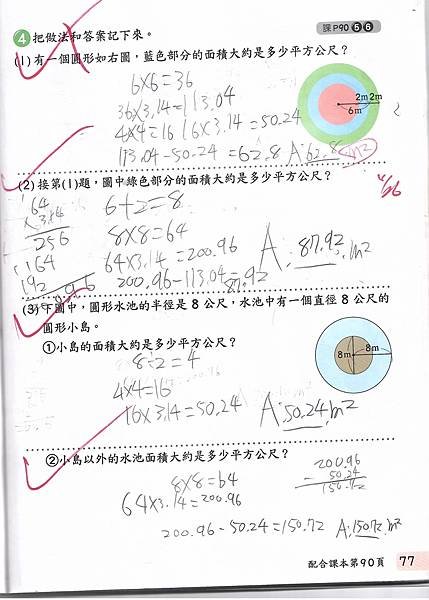 課P90 ⑤⑥
④ 把做法和答案記下來。
(1)有一個圓形如右圖,藍色部分的面積大約是多少平方公尺?
6×6=36
36×3.14=113.04
4×4=16 16×3.14=50.24
113.04-50.24=62.8 A:62.8
m2
2m 2m
6m
(2)接第(1)題,圖中綠色部分的面積大約是多少平方公尺?
64
× 3.14
256
64
192
6+2=8
8×8=64
64×3.14=200.96
200.96-113.04=87.92
A:87.92m2
(3)下圖中,圓形水池的半徑是8公尺,水池中有一個直徑8公尺的
圓形小島。
①小島的面積大約是多少平方公尺?
8÷2=4
4×4=16
16×3.14=50.24 A:50.24m2
8m 8m
②小島以外的水池面積大約是多少平方公尺?
8×8=64
64×3.14=200.96
200.96-50.24=150.72 A:150.72m2
200.96
- 50.24
150.72
配合課本第90頁 77